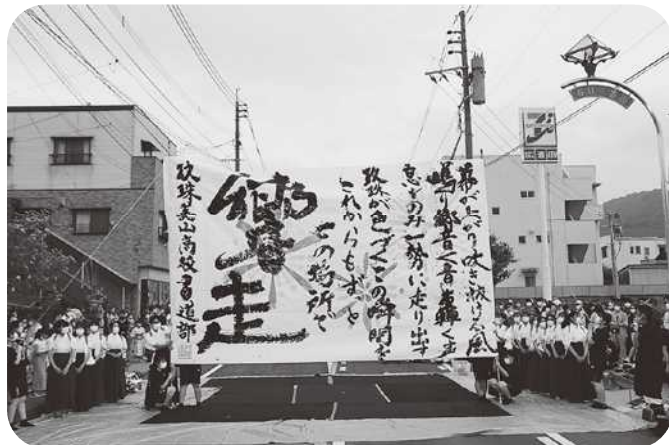 幕が上がり吹き抜ける風
鳴り響く音轟く声
息をのみ一勢に走り出す
玖珠が色づくこの瞬間を
これからもずっと
この場所で
響走
玖珠美山高校書道部